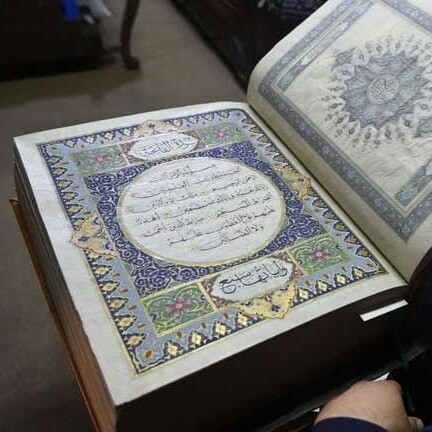 سورة الفاتحة
بسم الله الرحمن الرحيم
الحمد لله رب العالمين
الرحمن الرحيم مالك يوم الدين
إياك نعبد وإياك نستعين اهدنا
الصراط المستقيم صراط الذين أنعمت
عليهم غير المغضوب عليهم
ولا الضالين
وآياتها سبع